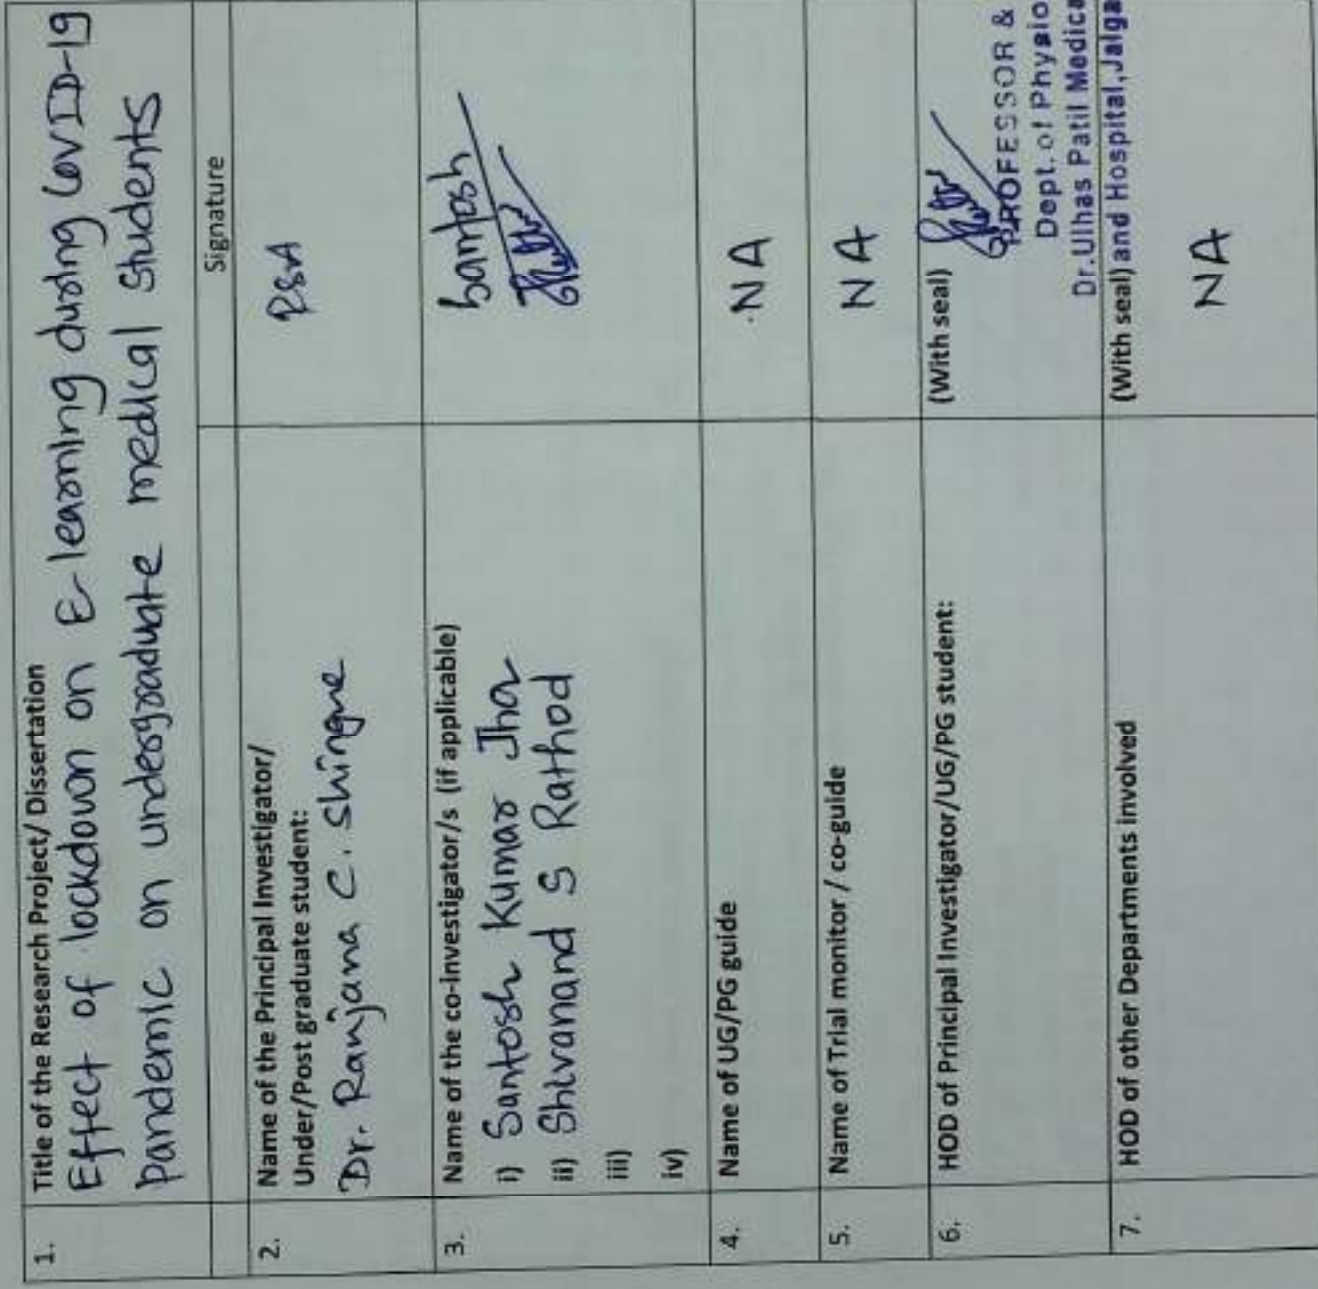 1. Title of the Research Project/ Dissertation
Effect of lockdown on E-learning during COVID-19
Pandemic on undergraduate medical students
Signature
2. Name of the Principal Investigator/
Under/Post graduate student:
Dr. Ranjana C. Shingne
3. Name of the co-investigator/s (if applicable)
i) Santosh Kumar Jha Santosh
ii) Shivanand S Rathod
iii)
iv)
4. Name of UG/PG guide NA
5. Name of Trial monitor / co-guide NA
6. HOD of Principal Investigator/UG/PG student: (With seal)
PROFESSOR &
Dept. of Physio
Dr. Ulhas Patil Medica
7. HOD of other Departments involved (With seal) and Hospital, Jalga
NA